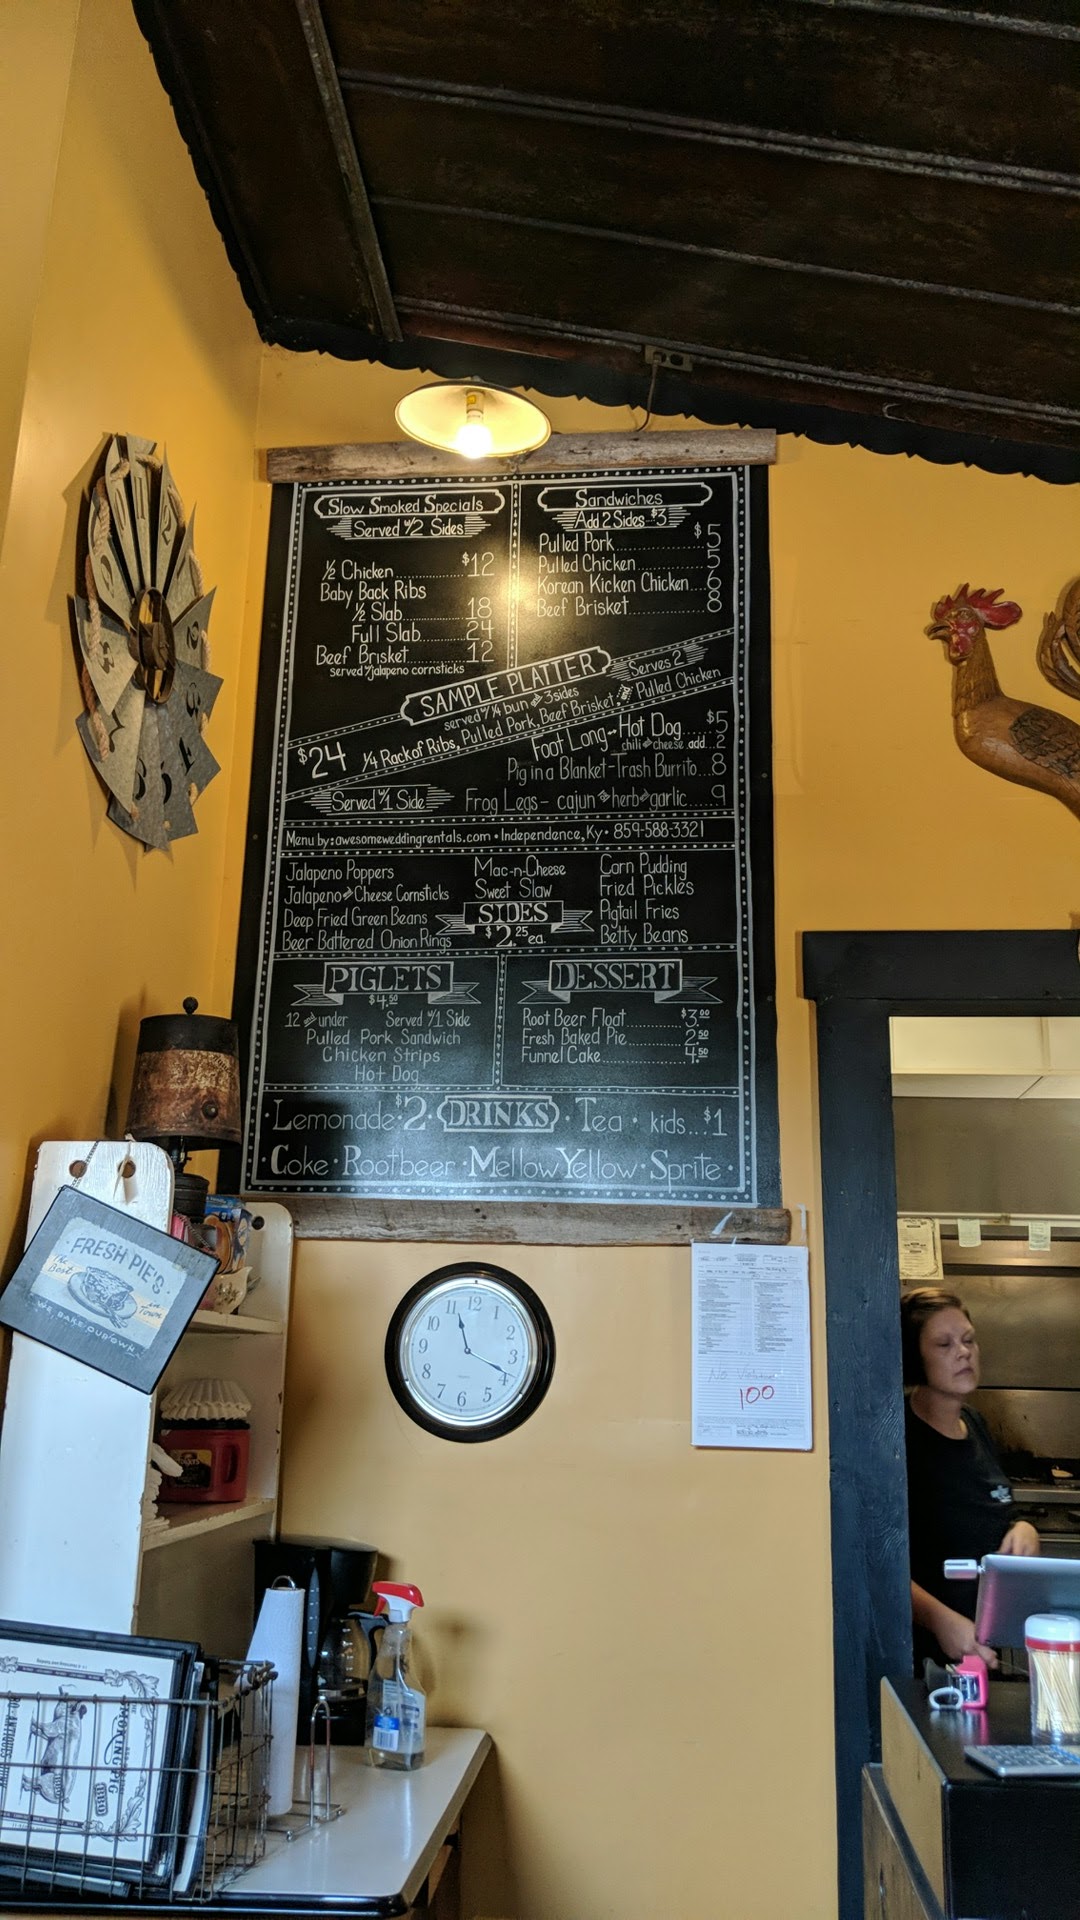 Slow Smoked Specials
Served w/2 Sides
½ Chicken........$12
Baby Back Ribs
½ Slab........18
Full Slab........24
Beef Brisket........12
served w/ jalapeno cornsticks
Sandwiches
Add 2 Sides $3
Pulled Pork........$5
Pulled Chicken........5
Korean Kicken Chicken....6
Beef Brisket........8
SAMPLE PLATTER
Serves 2
served w/ ¼ bun and 3 sides
$24 ¼ Rack of Ribs, Pulled Pork, Beef Brisket, and Pulled Chicken
Foot Long Hot Dog....$5
chili and cheese add...2
Pig in a Blanket-Trash Burrito...8
Served w/1 Side
Frog Legs - cajun or herb garlic......9
Menu by: awesomeweddingrentals.com • Independence, Ky • 859-588-3321
SIDES
$2.25 ea.
Jalapeno Poppers
Jalapeno and Cheese Cornsticks
Deep Fried Green Beans
Beer Battered Onion Rings
Mac-n-Cheese
Sweet Slaw
Corn Pudding
Fried Pickles
Pigtail Fries
Betty Beans
PIGLETS
$4.50
12 and under Served w/1 Side
Pulled Pork Sandwich
Chicken Strips
Hot Dog
DESSERT
Root Beer Float........$3.00
Fresh Baked Pie........2.50
Funnel Cake........4.50
• Lemonade $2 • DRINKS • Tea • kids...$1
• Coke • Rootbeer • Mellow Yellow • Sprite •
FRESH PIE'S
The Best
in Town
WE BAKE OUR OWN
12
1
2
3
4
5
6
7
8
9
10
11
100
THE SMOKING PIG
BBQ